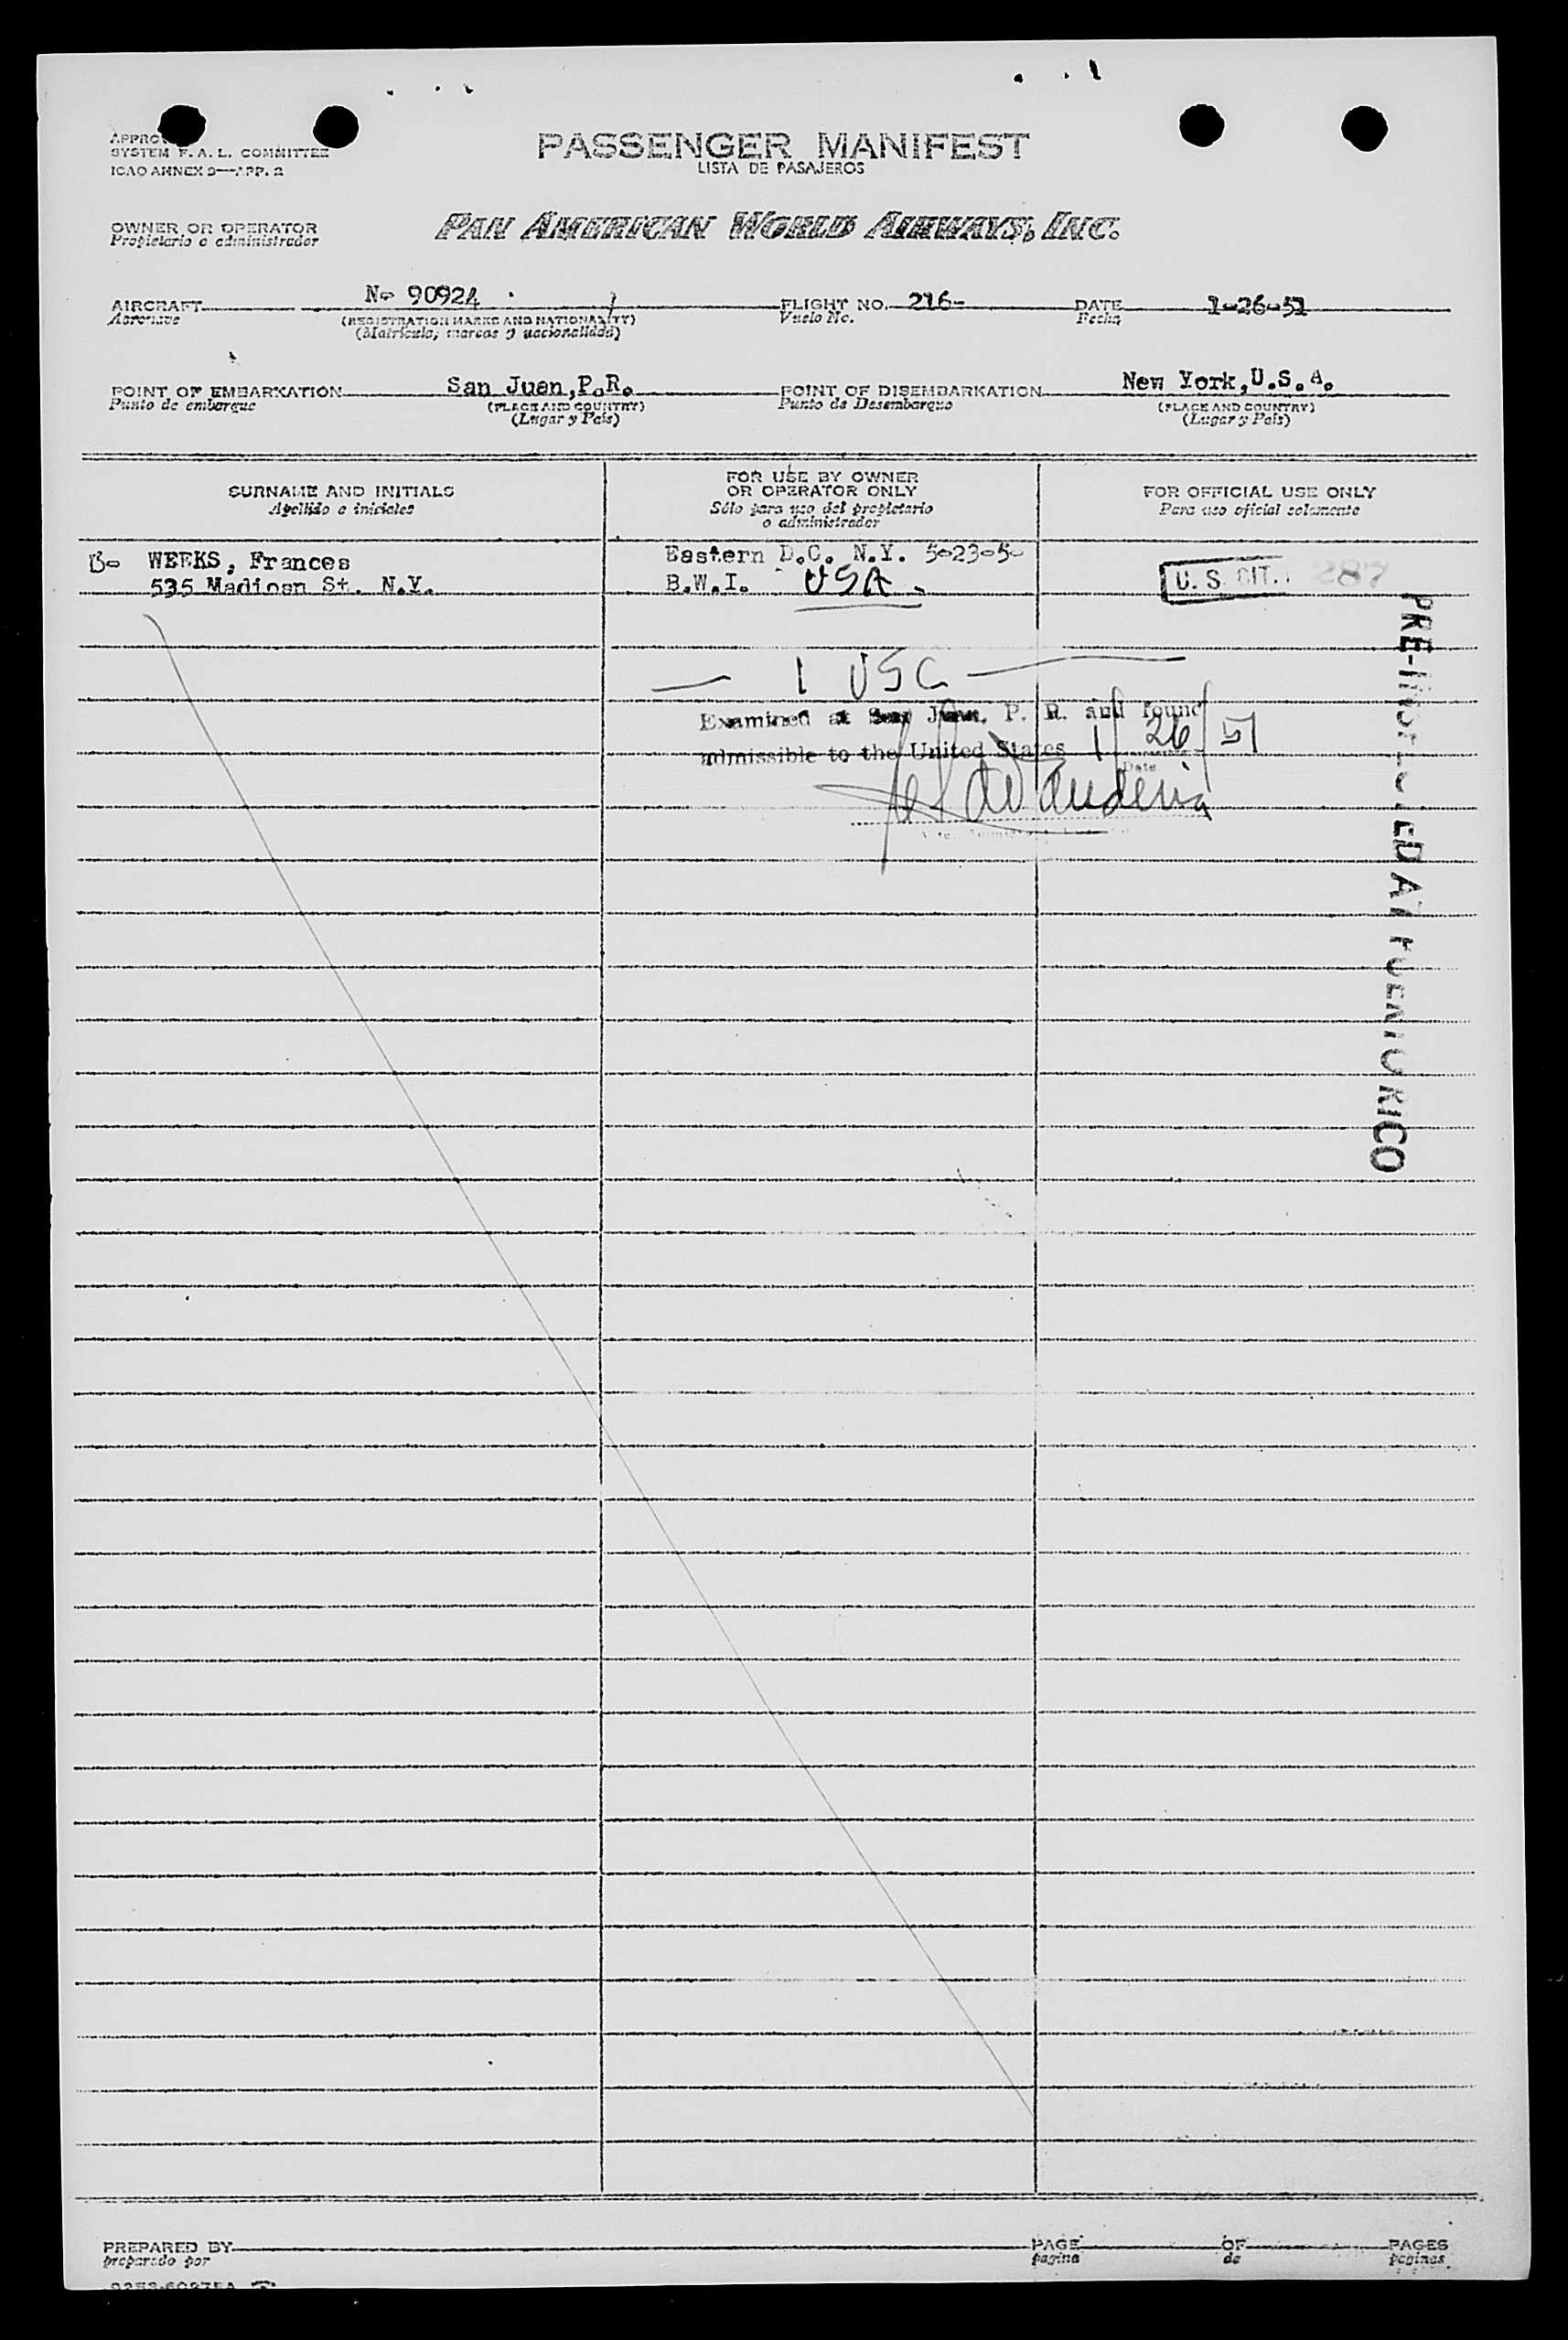 SYSTEM F. A. L. COMMITTEE
ICAO ANNEX 9—APP. 2
PASSENGER MANIFEST
LISTA DE PASAJEROS
OWNER OR OPERATOR
Propietario o administrador
PAN AMERICAN WORLD AIRWAYS, INC.
AIRCRAFT N- 90924 FLIGHT NO. 216- DATE 1-26-51
Aeronave (REGISTRATION MARKS AND NATIONALITY) Vuelo No. Fecha
(Matrícula, marcas y nacionalidad)
POINT OF EMBARKATION San Juan,P.R. POINT OF DISEMBARKATION New York,U.S.A.
Punto de embarque (PLACE AND COUNTRY) Punto de Desembarque (PLACE AND COUNTRY)
(Lugar y País) (Lugar y País)
SURNAME AND INITIALS
Apellido e iniciales
FOR USE BY OWNER
OR OPERATOR ONLY
Sólo para uso del propietario
o administrador
FOR OFFICIAL USE ONLY
Para uso oficial solamente
B- WEEKS, Frances Eastern D.C. N.Y. 5-23-5-
535 Madiosn St. N.Y. B.W.I. USA - U. S. CIT. 287
— 1 USC —
Examined at San Juan, P. R. and found
admissible to the United States 1/26/51
Date
PRE-INSPECTED AT PUERTO RICO
PREPARED BY PAGE OF PAGES
preparado por pagina de paginas